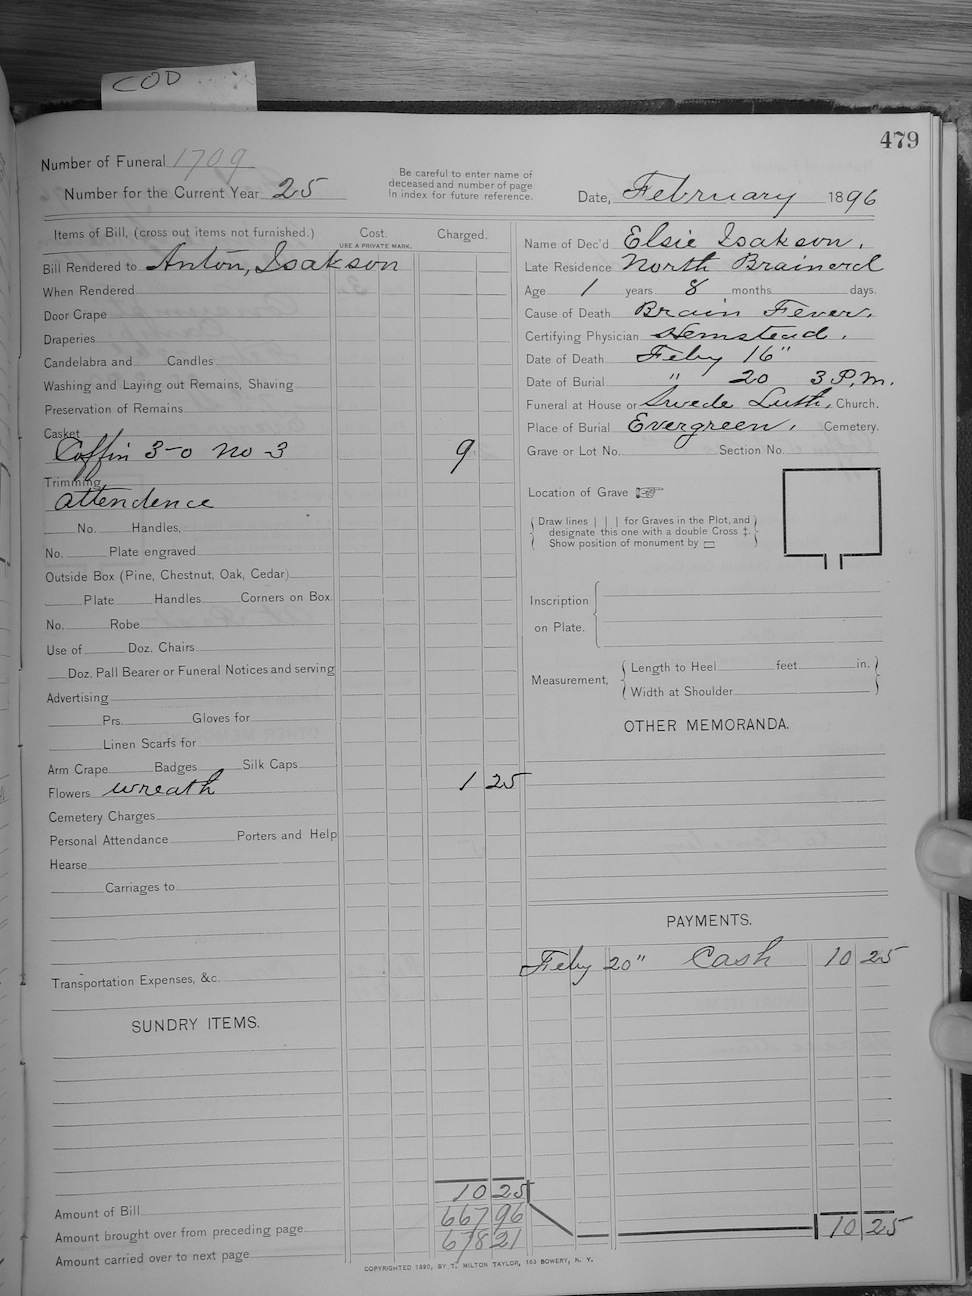 COD
479
Number of Funeral 1709
Number for the Current Year 25
Be careful to enter name of
deceased and number of page
in index for future reference.
Date, February 1896
Items of Bill, (cross out items not furnished.) Cost. Charged.
USE A PRIVATE MARK.
Bill Rendered to Anton, Isakson
When Rendered
Door Crape
Draperies
Candelabra and Candles
Washing and Laying out Remains, Shaving
Preservation of Remains
Casket
Coffin 3-0 No 3 9
Trimming
attendence
No. Handles,
No. Plate engraved
Outside Box (Pine, Chestnut, Oak, Cedar)
Plate Handles Corners on Box
No. Robe
Use of Doz. Chairs
Doz. Pall Bearer or Funeral Notices and serving
Advertising
Prs. Gloves for
Linen Scarfs for
Arm Crape Badges Silk Caps
Flowers wreath 1 25
Cemetery Charges
Personal Attendance Porters and Help
Hearse
Carriages to
Transportation Expenses, &c.
SUNDRY ITEMS.
10 25
Amount of Bill 667 96
Amount brought over from preceding page 678 21
Amount carried over to next page
Name of Dec'd Elsie Isakson,
Late Residence North Brainerd
Age 1 years 8 months days.
Cause of Death Brain Fever,
Certifying Physician Hemstead,
Date of Death Feby 16"
Date of Burial " 20 3 P.M.
Funeral at House or Swede Luth, Church.
Place of Burial Evergreen, Cemetery.
Grave or Lot No. Section No.
Location of Grave
Draw lines | | | for Graves in the Plot, and
designate this one with a double Cross ‡.
Show position of monument by ▭
Inscription
on Plate.
Measurement, Length to Heel feet in.
Width at Shoulder
OTHER MEMORANDA.
PAYMENTS.
Feby 20" Cash 10 25
10 25
COPYRIGHTED 1890, BY T. MILTON TAYLOR, 163 BOWERY, N. Y.